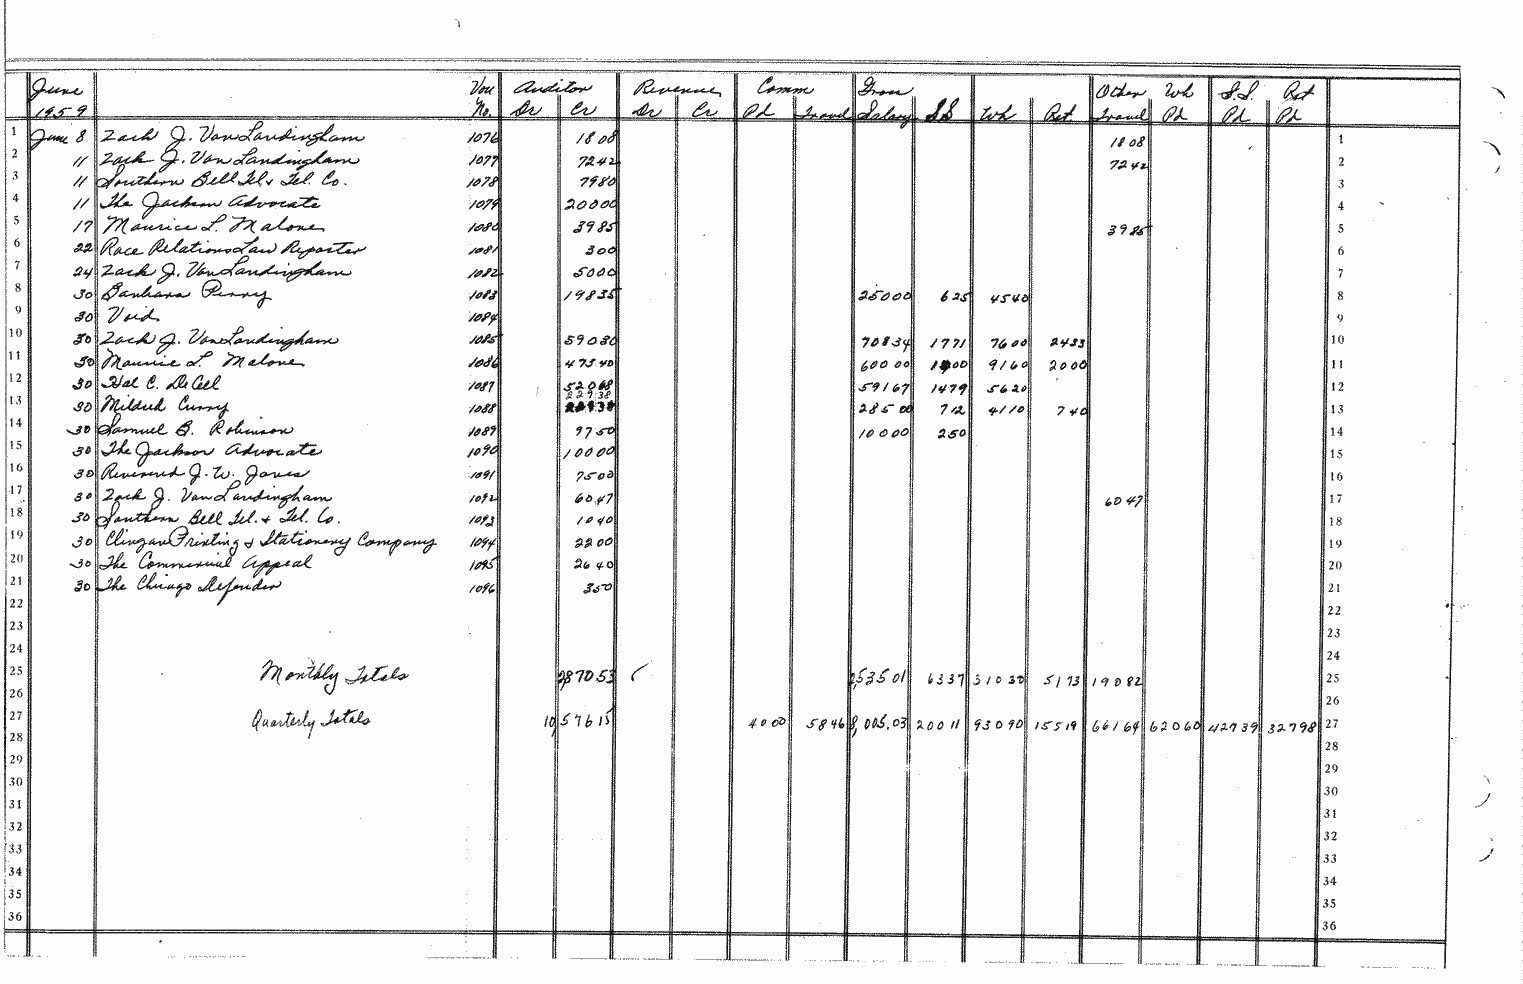 June Vou Auditor Revenue Comm Gross Other Wh S.S. Ret
1959 No. Dr Cr Dr Cr Pd Travel Salary SS Wh Ret Travel Pd Pd Pd
1 June 8 Zack J. VanLandingham 1076 18 08 18 08 1
2 11 Zack J. VanLandingham 1077 72 42 72 42 2
3 11 Southern Bell Tel & Tel. Co. 1078 79 80 3
4 11 The Jackson Advocate 1079 200 00 4
5 17 Maurice L. Malone 1080 39 85 39 85 5
6 22 Race Relations Law Reporter 1081 3 00 6
7 24 Zack J. VanLandingham 1082 50 00 7
8 30 Barbara Penny 1083 198 35 250 00 6 25 45 40 8
9 30 Void 1084 9
10 30 Zack J. VanLandingham 1085 590 30 708 34 17 71 76 00 24 33 10
11 30 Maurice L. Malone 1086 473 40 600 00 15 00 91 60 20 00 11
12 30 Hal C. DeCell 1087 520 68 591 67 14 79 56 20 12
13 30 Mildred Curry 1088 229 38 285 00 7 12 41 10 7 40 13
14 30 Samuel B. Robinson 1089 97 50 100 00 2 50 14
15 30 The Jackson Advocate 1090 100 00 15
16 30 Reverend J. W. Jones 1091 75 00 16
17 30 Zack J. VanLandingham 1092 60 47 60 47 17
18 30 Southern Bell Tel. & Tel. Co. 1093 10 40 18
19 30 Clingan Printing & Stationery Company 1094 22 00 19
20 30 The Commercial Appeal 1095 26 40 20
21 30 The Chicago Defender 1096 3 50 21
22 22
23 23
24 24
25 Monthly Totals 2,870 53 2,535 01 63 37 310 30 51 73 190 82 25
26 26
27 Quarterly Totals 10,576 15 40 00 58 46 8,005.03 200 11 930 90 155 19 661 64 620 60 427 39 327 98 27
28 28
29 29
30 30
31 31
32 32
33 33
34 34
35 35
36 36